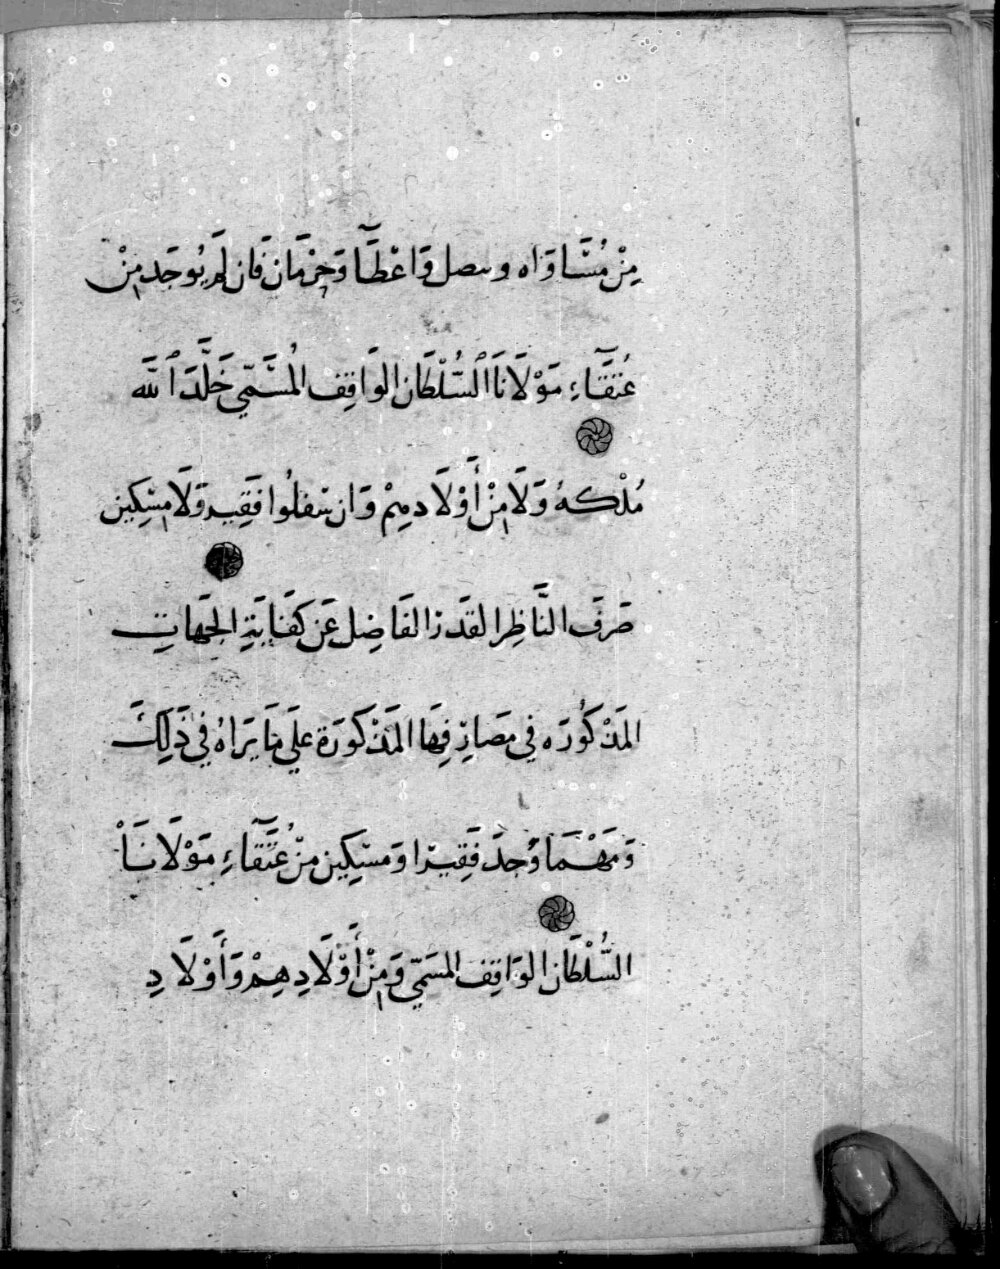 مِنْ مُسَاوَاه وتفضل وَاعْطَآ وَحِرْمَان فَان لَم يُوجَد مِنْ
عُتقَآءِ مَوْلَانَا السُّلْطَان الوَاقِف المُسَمّي خَلَّدَ ٱللَّه
مُلْكهُ وَلَا مِنْ أَوْلَادهِمْ وَان سفلُوا فَقِير وَلَا مِسْكِين
صَرفَ النَّاظِر القَدر الفَاضِل عَن كفَايَةِ الجَهاتِ
المَذْكُورَه فِي مَصَارِفِهَا المَذْكورَة علَي مَا يَرَاهُ فِي ذَلِكَ
وَمَهْمَا وُجدَ فَقِيرا وَمسْكِين مِنْ عُتَقَآءِ مَوْلَانَا
السُّلْطَان الوَاقِف المسَمّي وَمِنْ أَوْلَادِهِمْ وَأَوْلَادِ